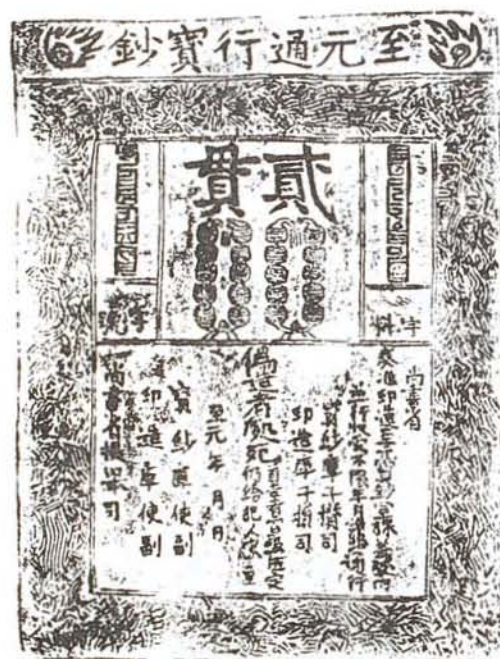 至元通行寶鈔
貳貫
字料
字號
尚書省
奏准印造至元寶鈔宣課差役內
並行收受不限年月諸路通行
寶鈔庫子攢司
印造庫子攢司
偽造者處死首告者賞銀五定仍給犯人家產
至元年月日
寶鈔庫使副
印造庫使副
尚書省提舉司